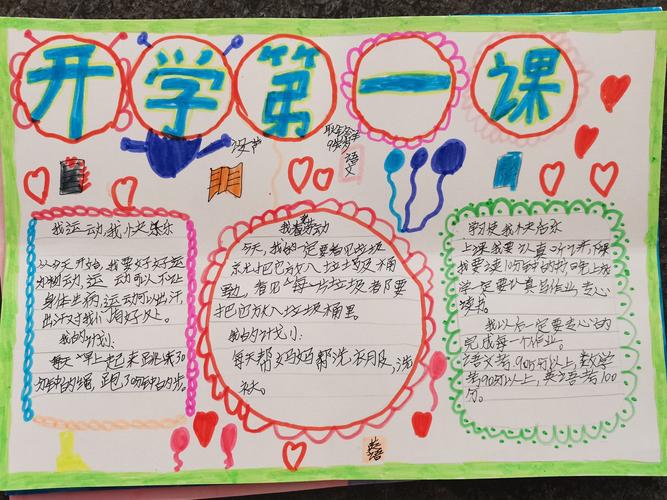 开学第一课
语文
我运动,我快乐
从今天开始,我要好好运
动。运动可以不让
身体生病,运动可以出汗,
出汗对我们有好处。
我的计划:
每天早上起来跳绳30
分钟的绳,跑10分钟的步。
我爱劳动
今天,我的一定要看见垃圾
就把它放入垃圾桶
里,看见每一片垃圾都要
把它放入垃圾桶里。
我的计划:
每天帮妈妈洗衣服,洗
上课我要认真听讲,下课
我要读10分钟的书,晚上放
学一定要认真写作业,专心
读书。
我以后一定要专心的
完成每一个作业。
语文考90分以上,数学
考90分以上,英语考100
分。
英语